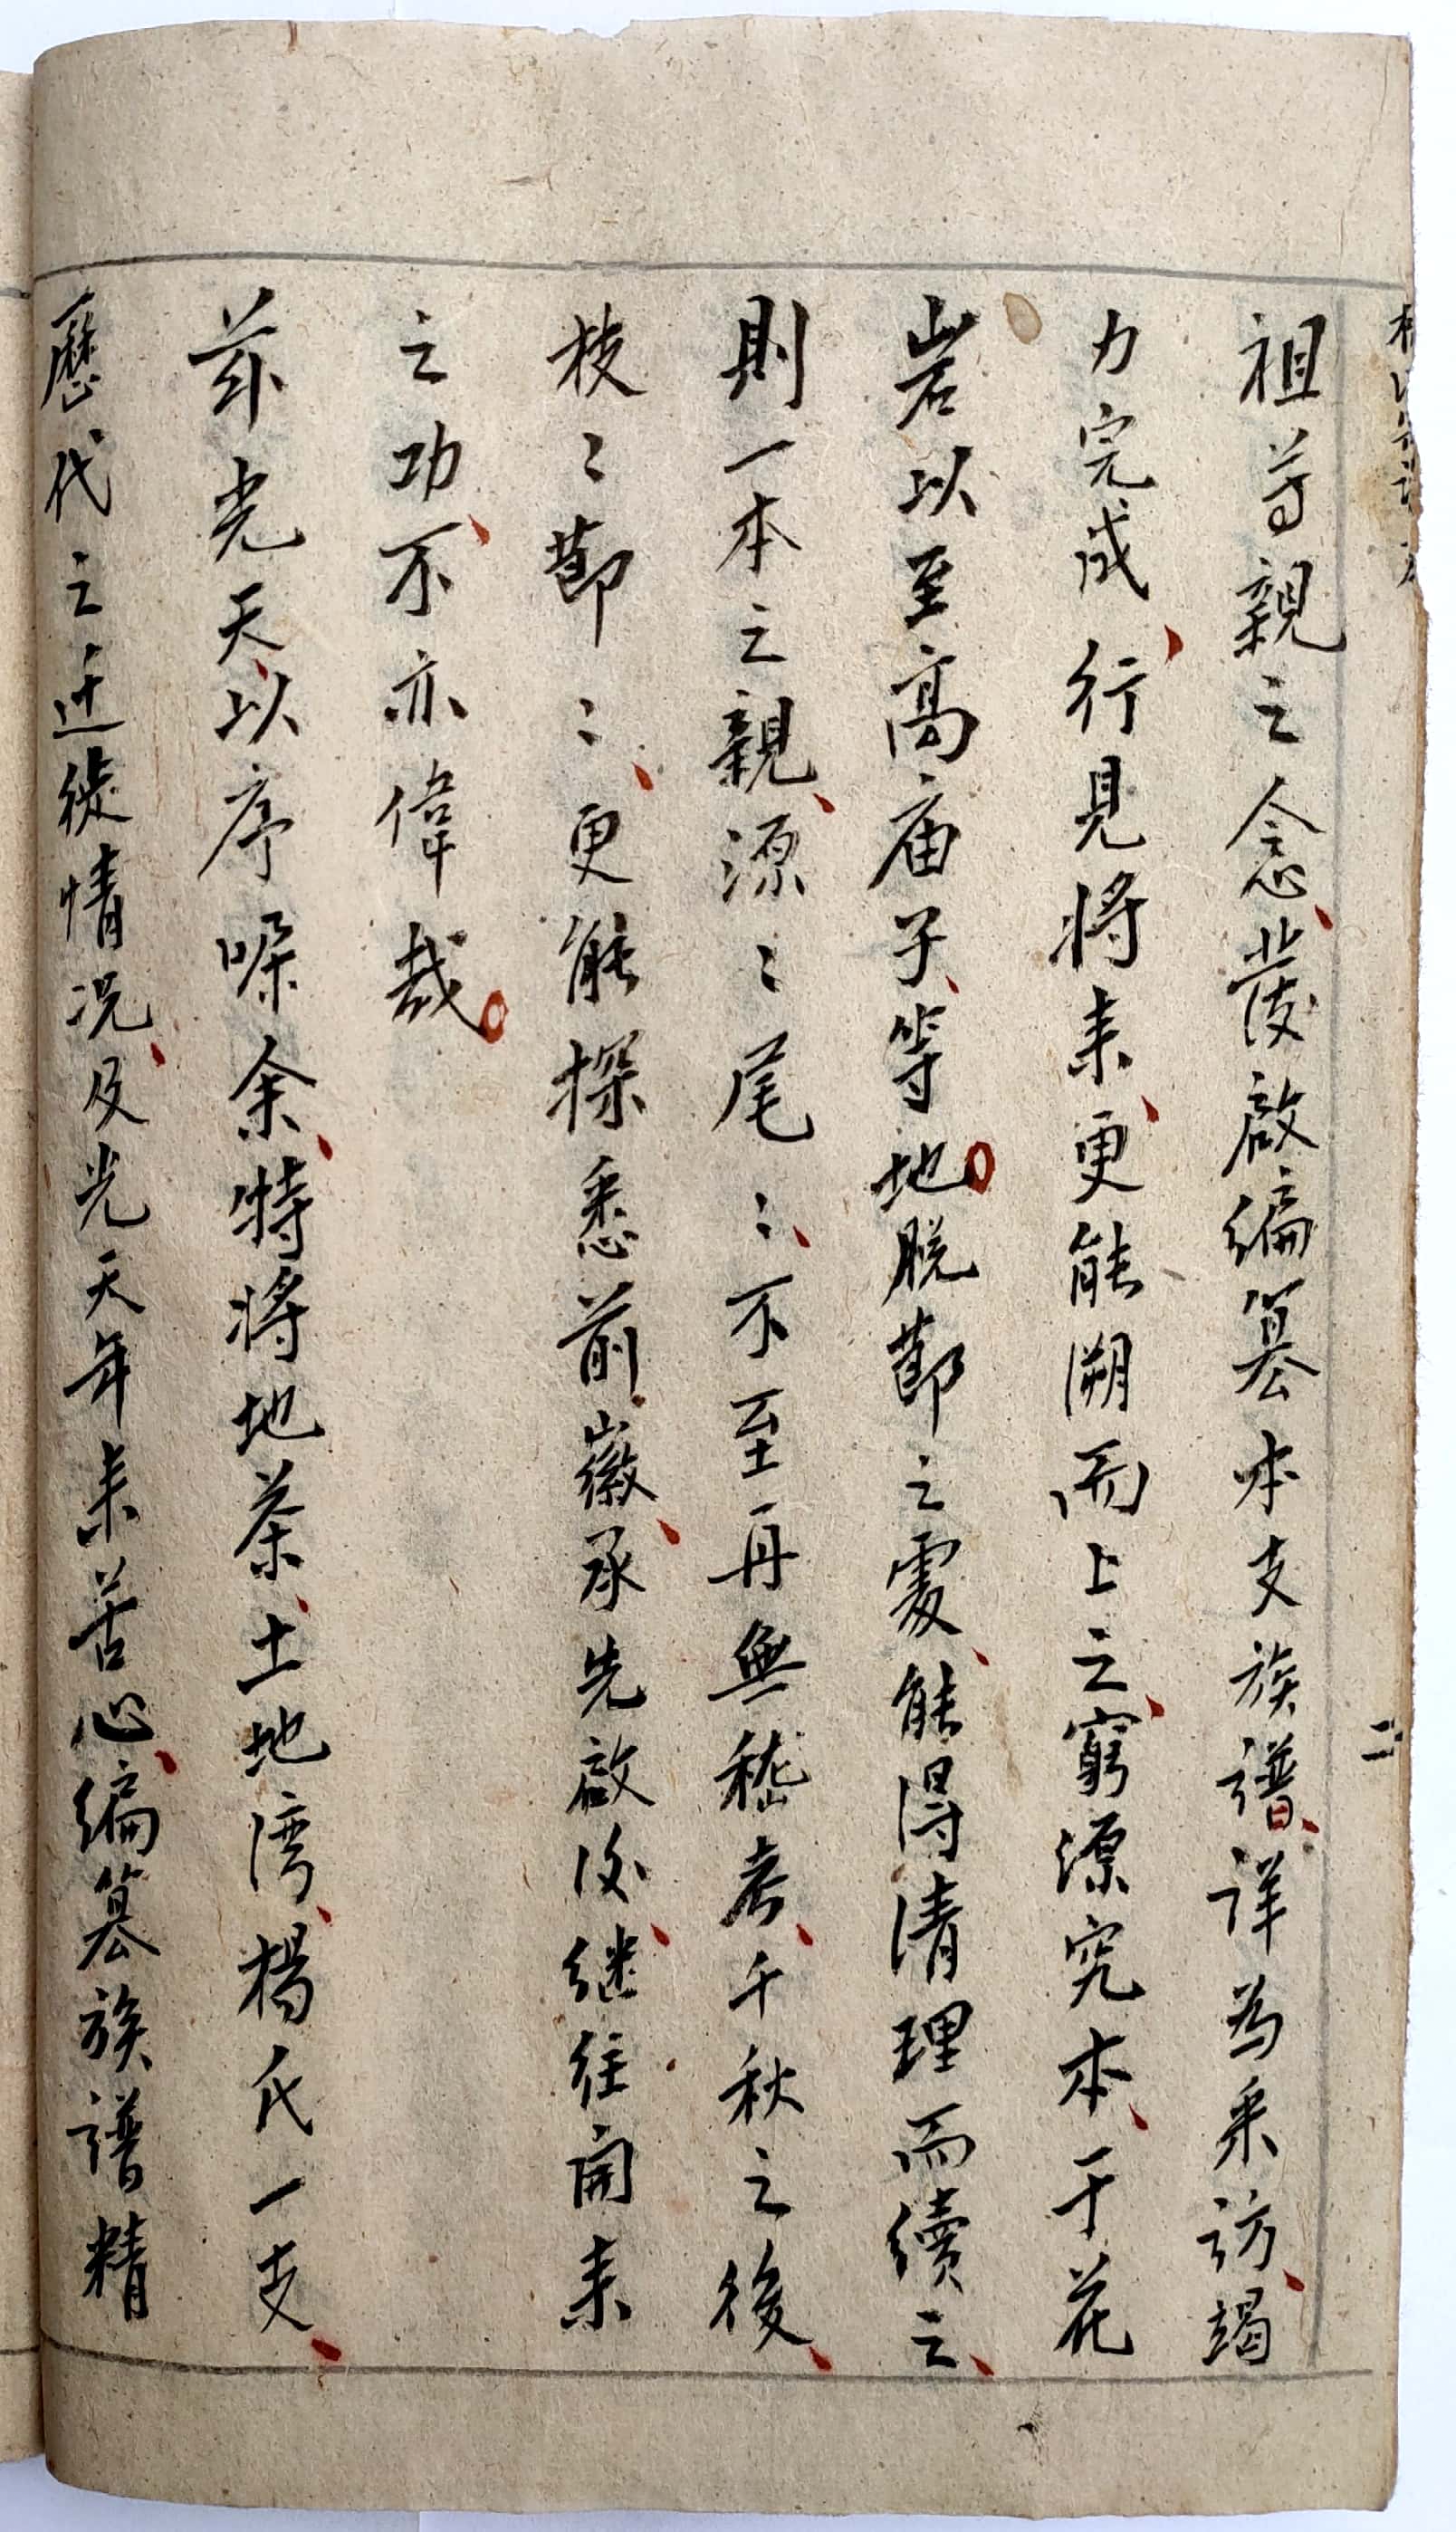 祖尊親之念、發啟編篡本支族譜、詳為采訪、竭
力完成、行見将来、更能溯而上之、窮源究本、千花
岩以至高庙子、等地。脱節之處、能得清理而續之、
則一本之親、源〻尾〻、不至再無稽考、千秋之後、
枝〻節〻、更能探悉前徽、承先啟後、継往開来
之功、不亦偉哉。
茲光天、以序嘱余、特将地茶、土地湾、楊氏一支、
歷代之迁徙情况、及光天年来苦心、編篡族譜精
二